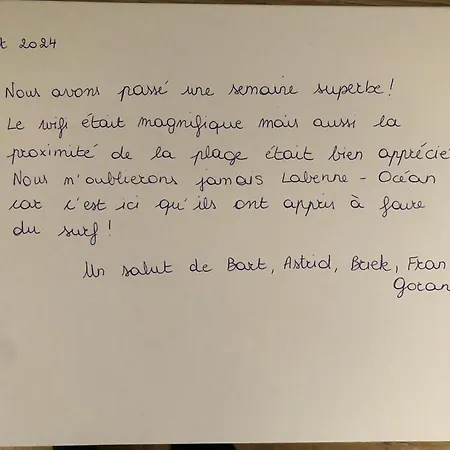 t 2024
Nous avons passé une semaine superbe!
Le wifi était magnifique mais aussi la
proximité de la plage était bien appréciée
Nous n'oublierons jamais Labenne - Océan
car c'est ici qu'ils ont appris à faire
du surf!
Un salut de Bart, Astrid, Briek, Fran
Goran